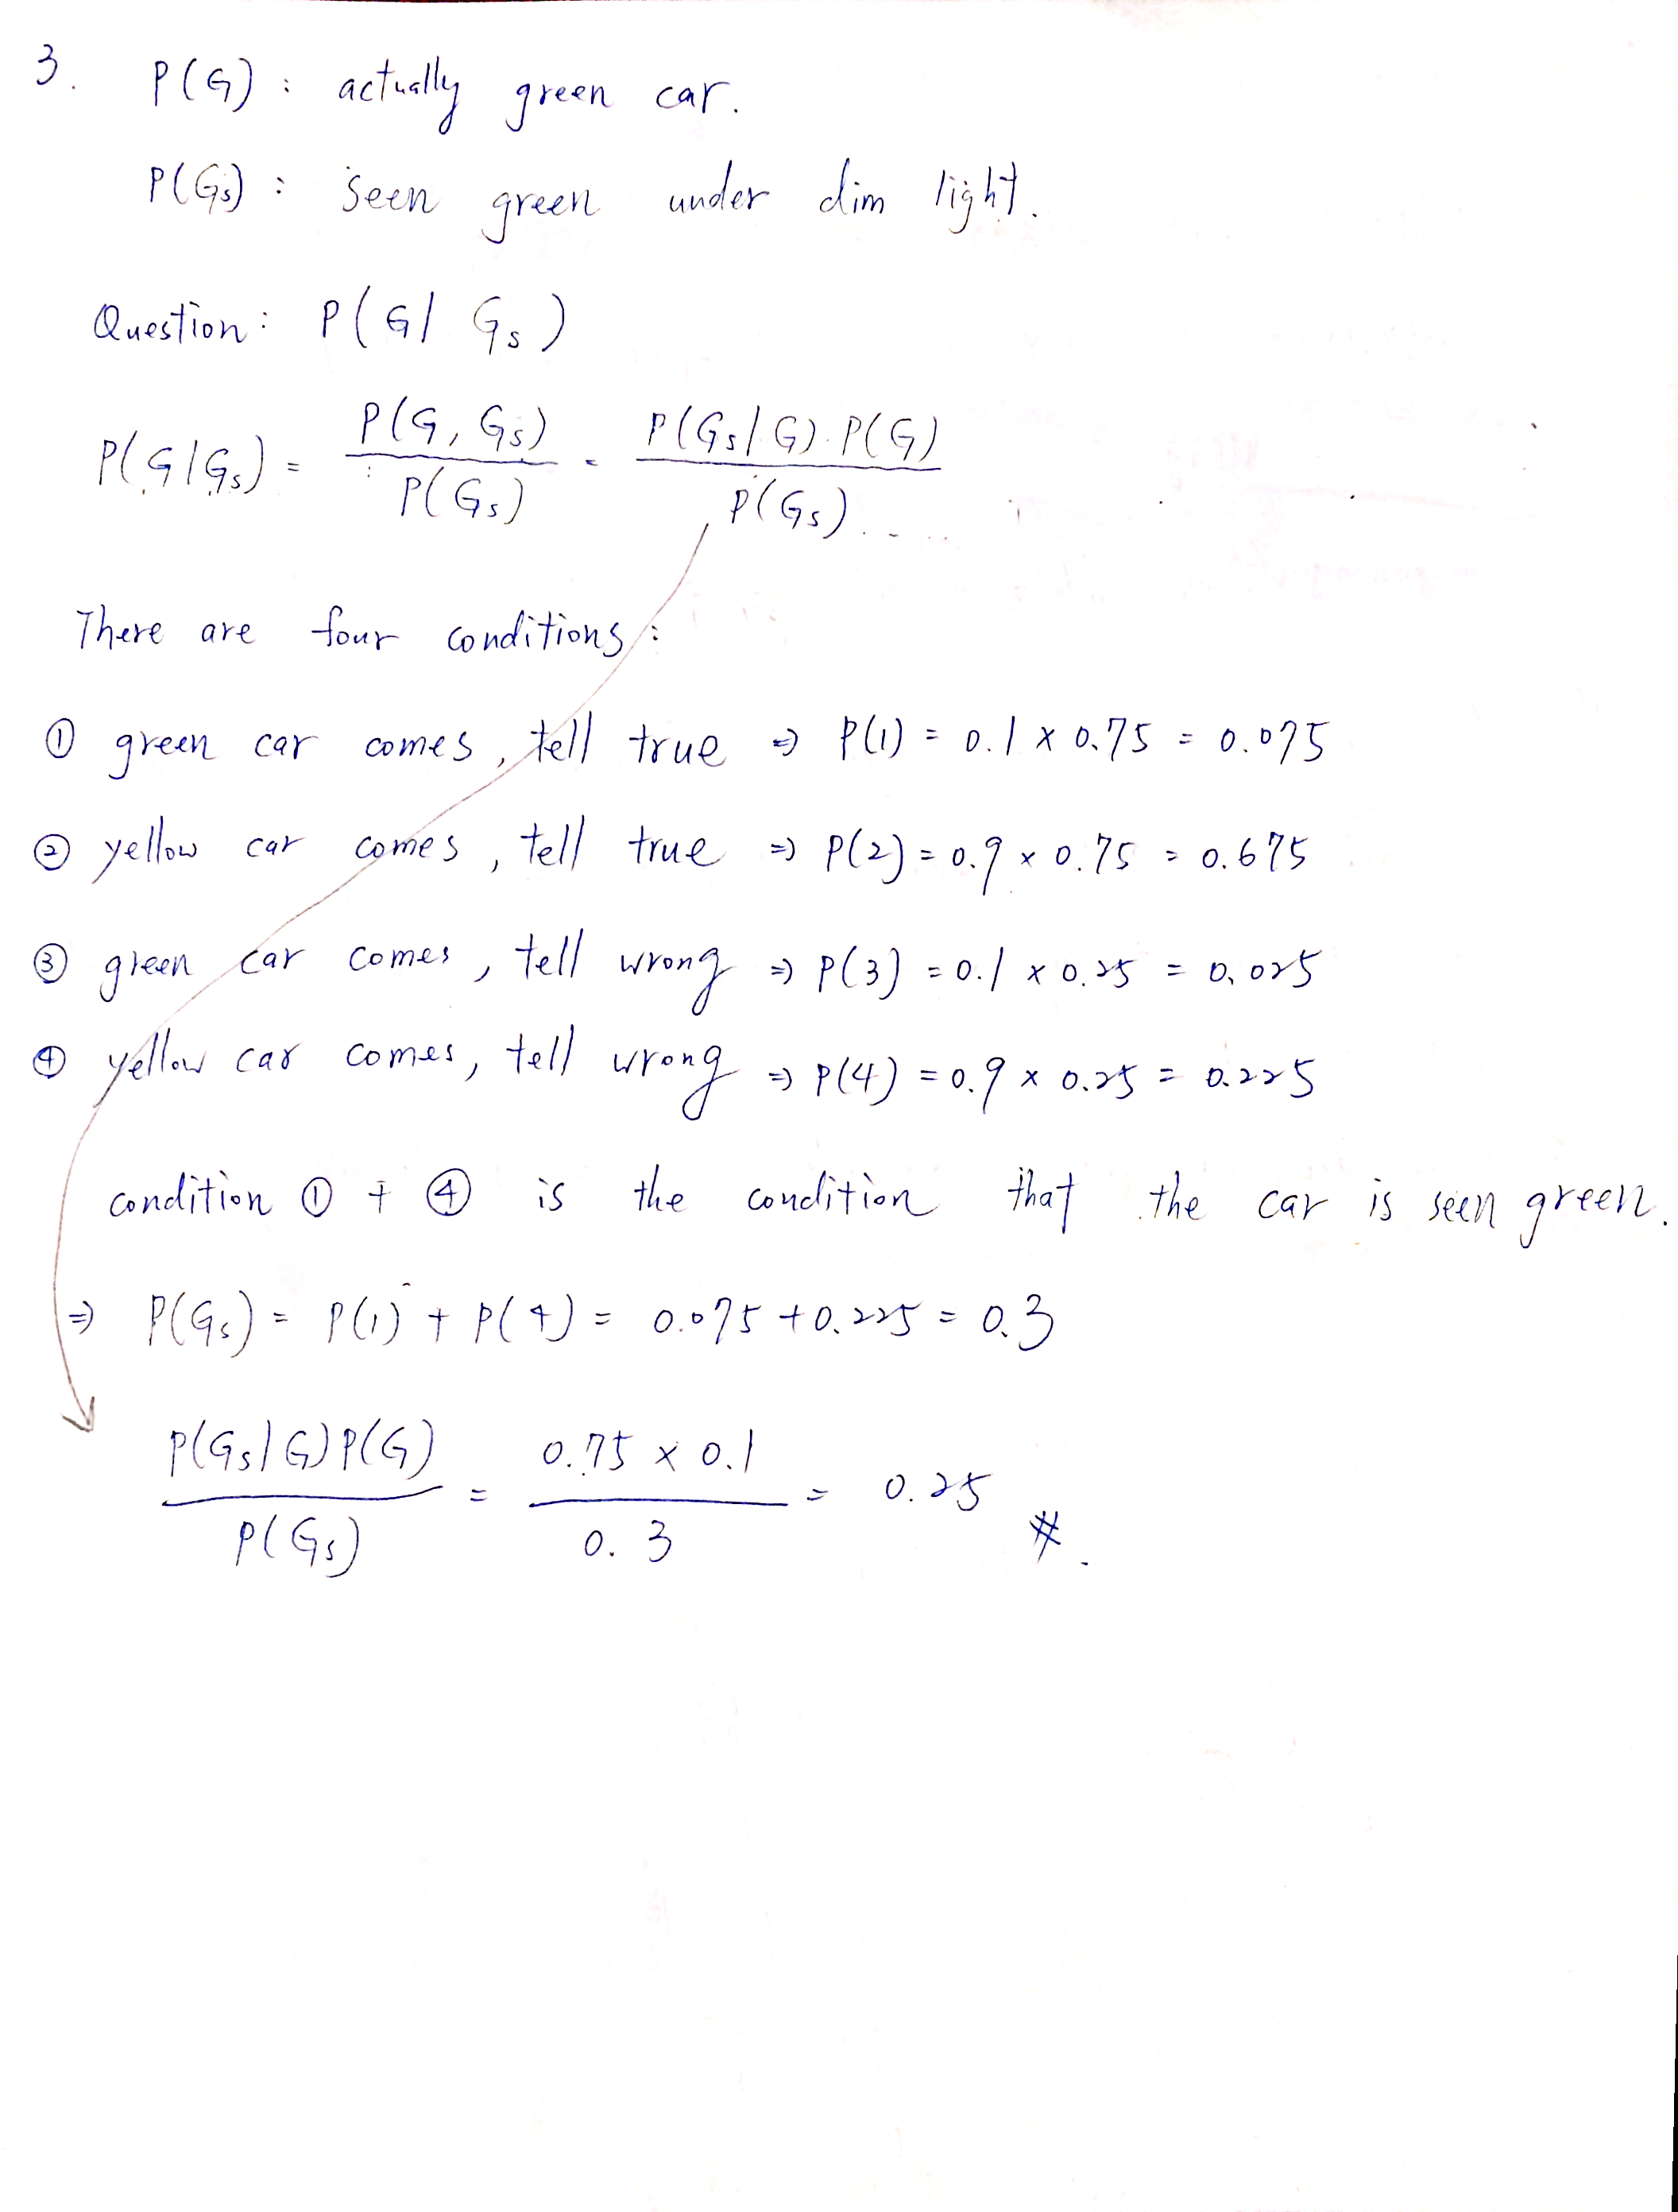 3. P(G) : actually green car.
P(Gs) : seen green under dim light.
Question: P(G| Gs)
P(G|Gs) = P(G, Gs) / P(Gs) = P(Gs|G)·P(G) / P(Gs)
There are four conditions:
① green car comes, tell true ⇒ P(1) = 0.1 × 0.75 = 0.075
② yellow car comes, tell true ⇒ P(2) = 0.9 × 0.75 = 0.675
③ green car comes, tell wrong ⇒ P(3) = 0.1 × 0.25 = 0.025
④ yellow car comes, tell wrong ⇒ P(4) = 0.9 × 0.25 = 0.225
condition ① + ④ is the condition that the car is seen green.
⇒ P(Gs) = P(1) + P(4) = 0.075 + 0.225 = 0.3
P(Gs|G)P(G) / P(Gs) = 0.75 × 0.1 / 0.3 = 0.25 #.